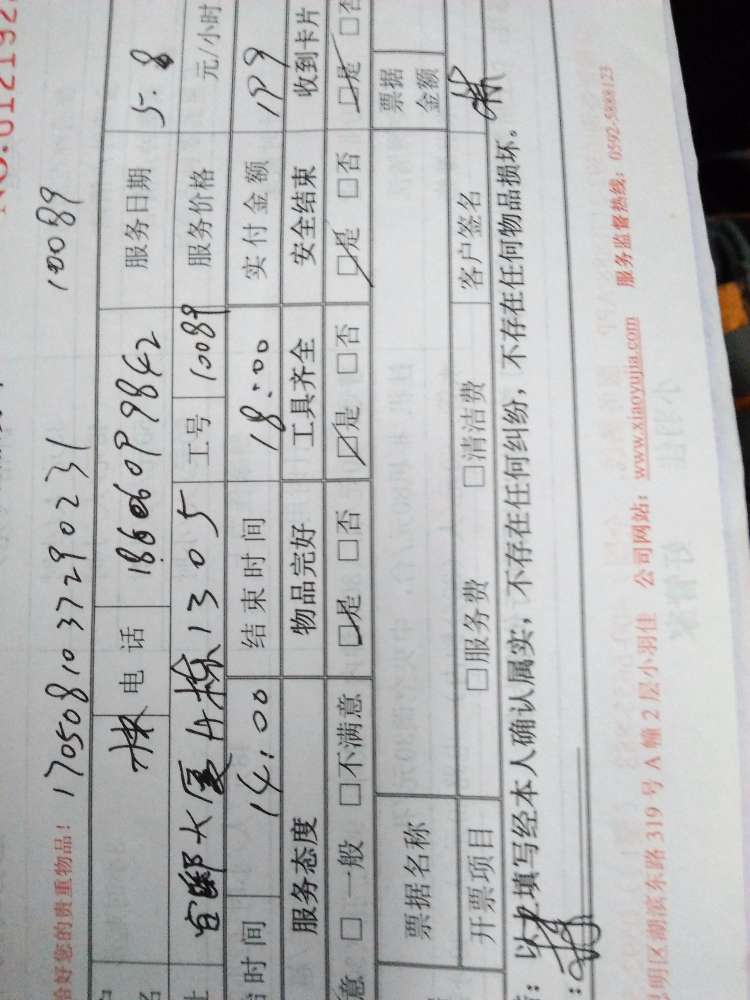 NO.012192
给好您的贵重物品! 1705081037290231 10089
名 林 电话 18606099842 服务日期 5.8
址 宜郡大厦A栋1305 工号 10089 服务价格 元/小时
时间 14:00 结束时间 18:00 实付金额 199
服务态度 物品完好 工具齐全 安全结束 收到卡片
意 □一般 □不满意 ☑是 □否 ☑是 □否 ☑是 □否 ☑是 □否
票据名称 票据金额
开票项目 □服务费 □清洁费 客户签名 林
:以上填写经本人确认属实,不存在任何纠纷,不存在任何物品损坏。
明区湖滨东路319号A幢2层小羽佳 公司网站:www.xiaoyujia.com 服务监督热线:0592-5888123